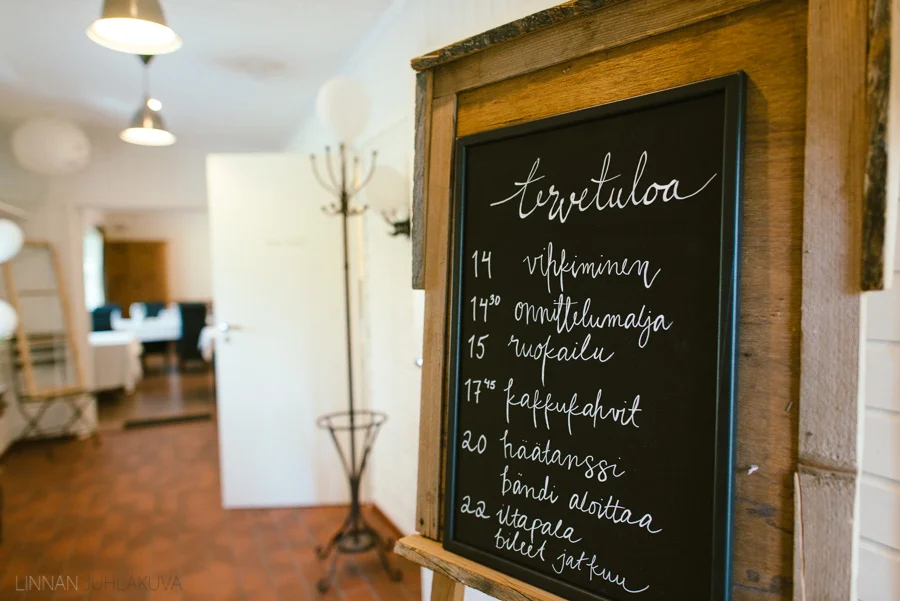 tervetuloa
14 vihkiminen
14³⁰ onnittelumalja
15 ruokailu
17⁴⁵ kakkukahvit
20 häätanssi
bändi aloittaa
22 iltapala
bileet jatkuu
LINNAN JUHLAKUVA